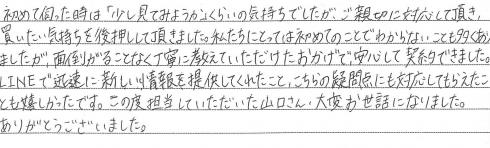 初めて伺った時は「少し見てみようか」くらいの気持ちでしたが、ご親切に対応して頂き、
買いたい気持ちを後押しして頂きました。私たちにとっては初めてのことでわからないことも多くあり
ましたが、面倒がることなく丁寧に教えていただけたおかげで、安心して契約できました。
LINEで迅速に新しい情報を提供してくれたこと、こちらの疑問点にも対応してもらえたこ
とも嬉しかったです。この度担当していただいた山口さん、大変お世話になりました。
ありがとうございました。